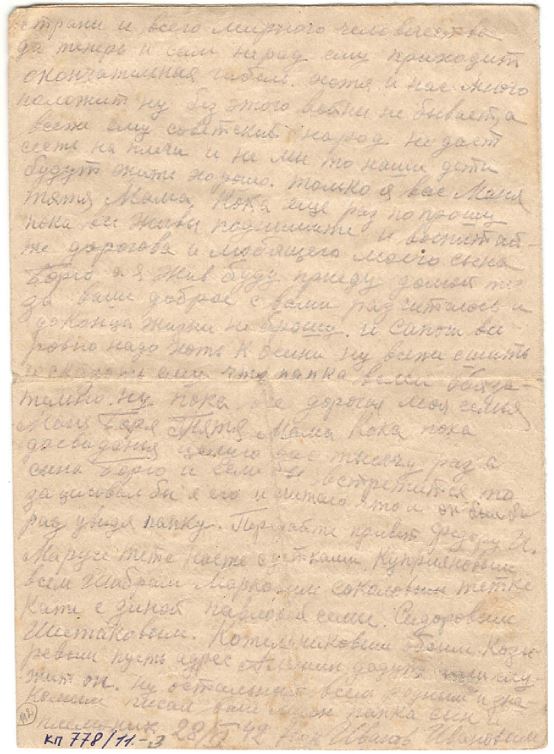 страни и всего мирного человечества
да теперь и сам народ ему приходит
окончательная гибель. хотя и нас много
положит ну без этого войны не бывает, а
всети ему советский народ не даст
сесть на плечи и не мы то наши дети
будут жить хорошо. только я вас Маня
тятя Мама, Кока еще раз попрошу
пока вы живы и воспитай-
те дорогова и любящего моего сына
Борю а я жив буду приеду домой то
за ваше доброе с вами и
доконца жизни не брошу. и Сапоги все
ровно надо хоть к осени ну сшить
и сказать ему что папка
ну пока все дорогая моя семия
Маня Боря Тятя Мама Кока пока
досвидания целую вас тысячу раз а
сына Борю и если бы встретится то
зацисовал бы я его и он
рад увидя папку. Передайте привет Федору И.
Марусе тете Насте с детками Куприяновым
всем Шабрам Марковым соколовым тетке
Кате с Зиной павловы семи. Сидоровым
Шестаковым. Котельниковым обоим Козы-
ревым пусть адрес дадут слу-
жит он. ну остальным всем родным и зна-
комым писал ваш муж папка син и
племянник 28/ 42
кп 778/11-3